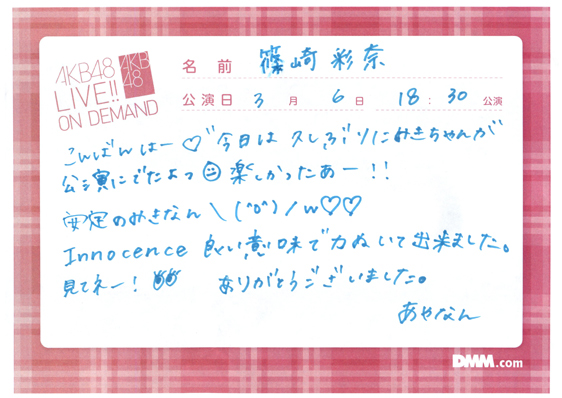 AKB48
LIVE!!
ON DEMAND
AKB
48
名前 篠崎彩奈
公演日 3月6日 18:30公演
こんばんはー♡゛今日は久しぶりにみきちゃんが
公演にでたよっ☺楽しかったあー!!
安定のみきなん\(^o^)/w♡♡
Innocence 良い意味で力ぬいて出来ました。
見てネー! ありがとうございました。
あやなん
DMM.com